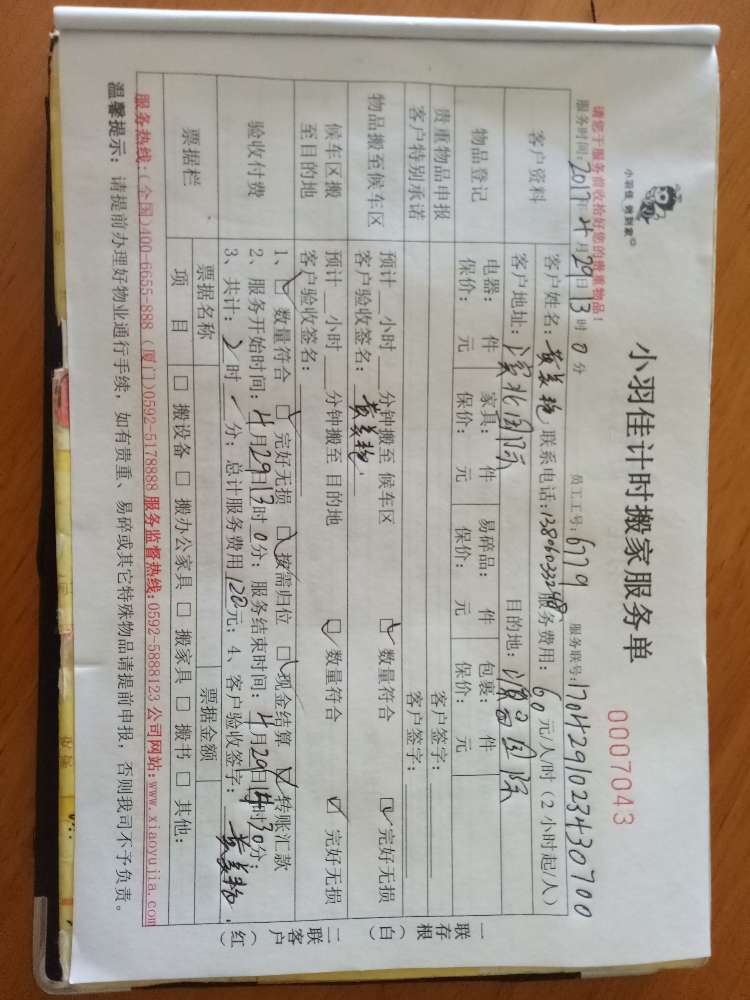 小羽佳 您到家
小羽佳计时搬家服务单
0007043
请您于服务前收拾好您的贵重物品！
员工工号：6779 服务联号：1704291023430700
服务时间：2017年4月29日13时0分
客户资料
客户姓名：黄美艳 联系电话：13806033298 服务费用：60元/人/时（2小时起/人）
客户地址：滨北国际 目的地：国际
物品登记
电器： 件 家具： 件 易碎品： 件 包裹： 件
保价： 元 保价： 元 保价： 元 保价： 元
贵重物品申报 客户签字：
客户特别承诺 客户签字：
物品搬至候车区
预计 小时 分钟搬至 候车区 ☑ 数量符合 ☑ 完好无损
客户验收签名：黄美艳
候车区搬至目的地
预计 小时 分钟搬至 目的地 ☑ 数量符合 ☑ 完好无损
客户验收签名：
验收付费
1、☑ 数量符合 ☑ 完好无损 ☑ 按需归位 ☑ 现金结算 ☑ 转账汇款
2、服务开始时间：4月29日13时0分；服务结束时间：4月29日14时30分；
3、共计：2时 分；总计服务费用120元；4、客户验收签字：黄美艳
票据栏
票据名称 票据金额
项 目 □ 搬设备 □ 搬办公家具 □ 搬家具 □ 搬书 □ 其他：
服务热线：（全国）400-6655-888（厦门）0592-5178888 服务监督热线：0592-5888123 公司网站：www.xiaoyujia.com
温馨提示：请提前办理好物业通行手续，如有贵重、易碎或其它特殊物品请提前申报，否则我司不予负责。
一联存根（白）
二联客户（红）